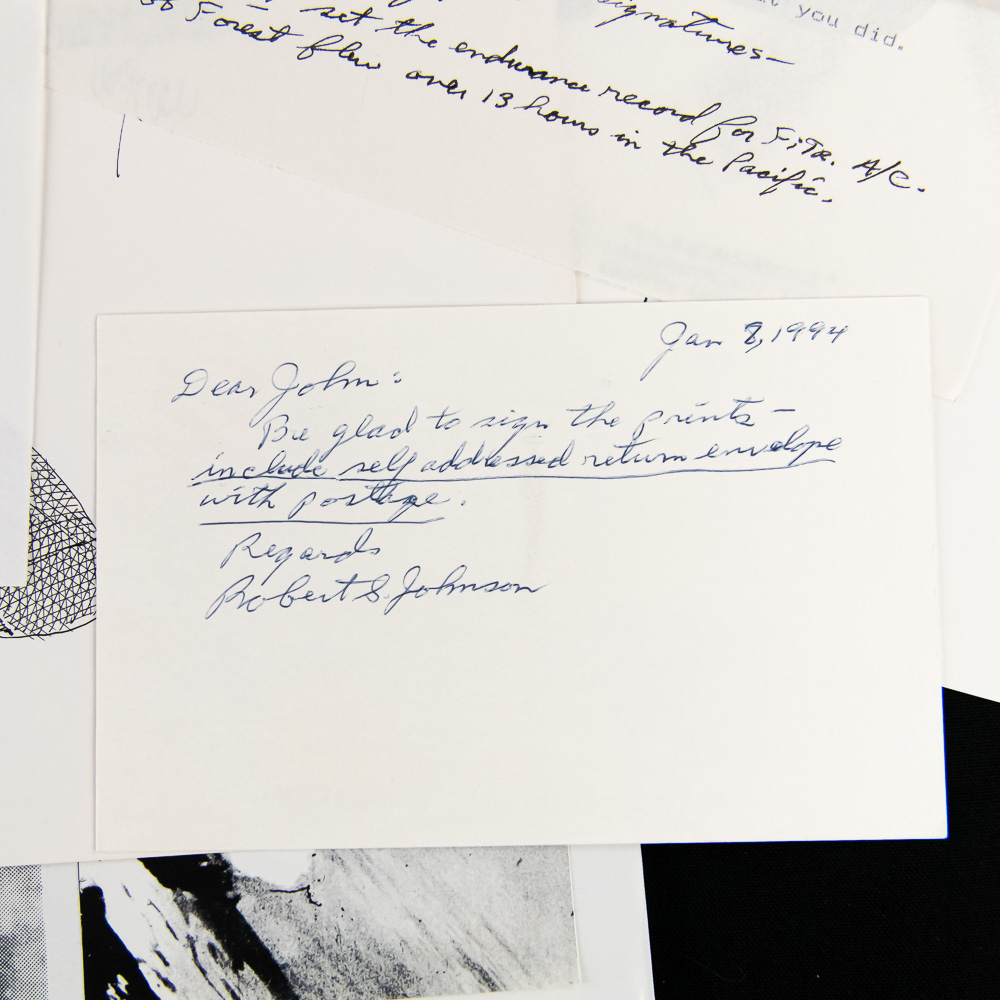 signatures—
t you did.
set the endurance record for FiTR. A/C.
of Forest flew over 13 hours in the Pacific.
Jan 8, 1994
Dear John:
Be glad to sign the prints—
include self addressed return envelope
with postage.
Regards
Robert S. Johnson